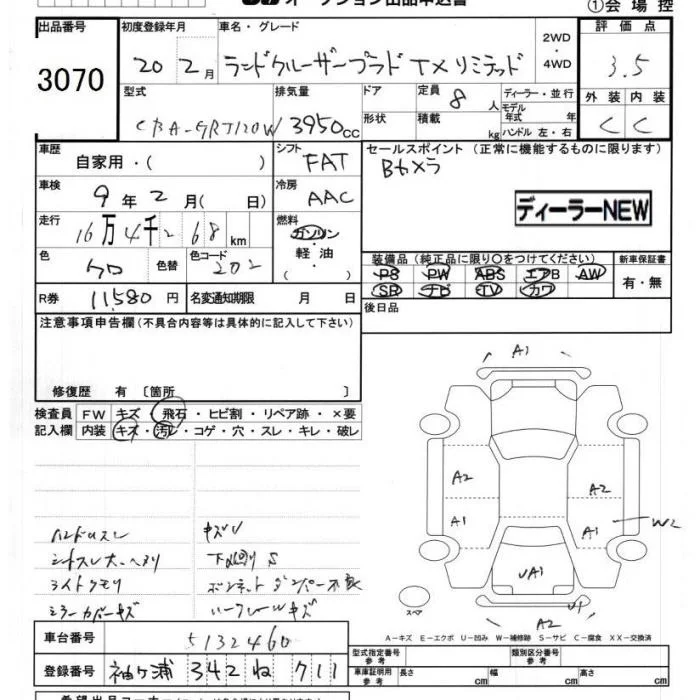 オークション出品申込書
①会場控
出品番号 3070
初度登録年月 20 2月
車名・グレード ランドクルーザープラド TXリミテッド
2WD ・ 4WD
評価点 3.5
外装 C 内装 C
型式 CBA-GRJ120W
排気量 3950cc
ドア
形状
定員 8人
積載 kg
ディーラー・並行
モデル年式 年
ハンドル 左・右
車歴 自家用・( )
シフト FAT
セールスポイント (正常に機能するものに限ります)
Bカメラ
車検 9年2月( 日)
冷房 AAC
ディーラーNEW
走行 16万4千268km
燃料 ガソリン・軽油・( )
色 クロ 色替 色コード 202
装備品(純正品に限り○をつけてください)
PS PW ABS エアB AW
SR ナビ TV カワ
新車保証書 有・無
R券 11,580円
名変通知期限 月 日
後日品
注意事項申告欄(不具合内容等は具体的に記入して下さい)
修復歴 有 〔箇所 〕
検査員記入欄
FW キズ・飛石・ヒビ割・リペア跡・×要
内装 キズ・汚レ・コゲ・穴・スレ・キレ・破レ
ハンドルスレ キズU
シートスレ大、ヘタリ 下回りS
ライトクモリ ボンネットダンパー不良
ミラーカバーキズ
A1
A2 A2
A1 A1 W2
UA1
U1
A2
スペア
A-キズ E-エクボ U-凹み W-補修跡 S-サビ C-腐食 XX-交換済
車台番号 5132460
登録番号 袖ヶ浦 342 ね 711
型式指定番号 参考
類別区分番号 参考
車庫証明用 参考 長さ cm 幅 cm 高さ cm